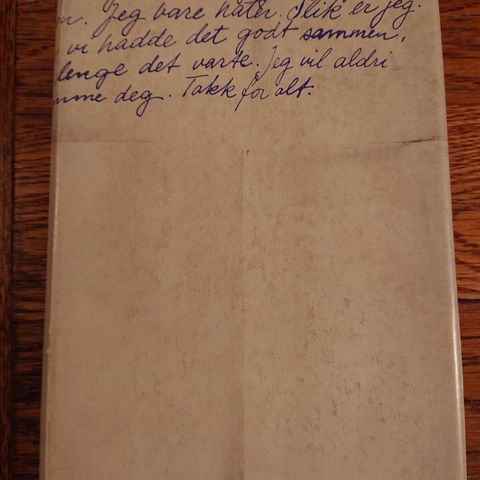 n. Jeg bare hater. Slik er jeg.
vi hadde det godt sammen,
lenge det varte. Jeg vil aldri
mme deg. Takk for alt.